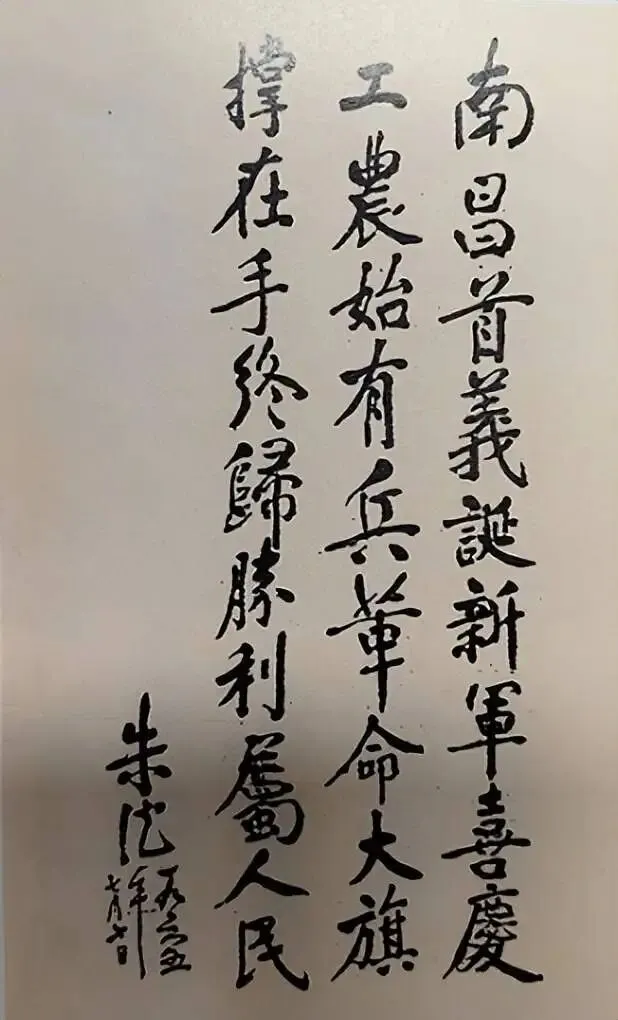 南昌首義誕新軍喜慶
工農始有兵革命大旗
撑在手終歸勝利屬人民
朱德
一九六五
年
七月七日